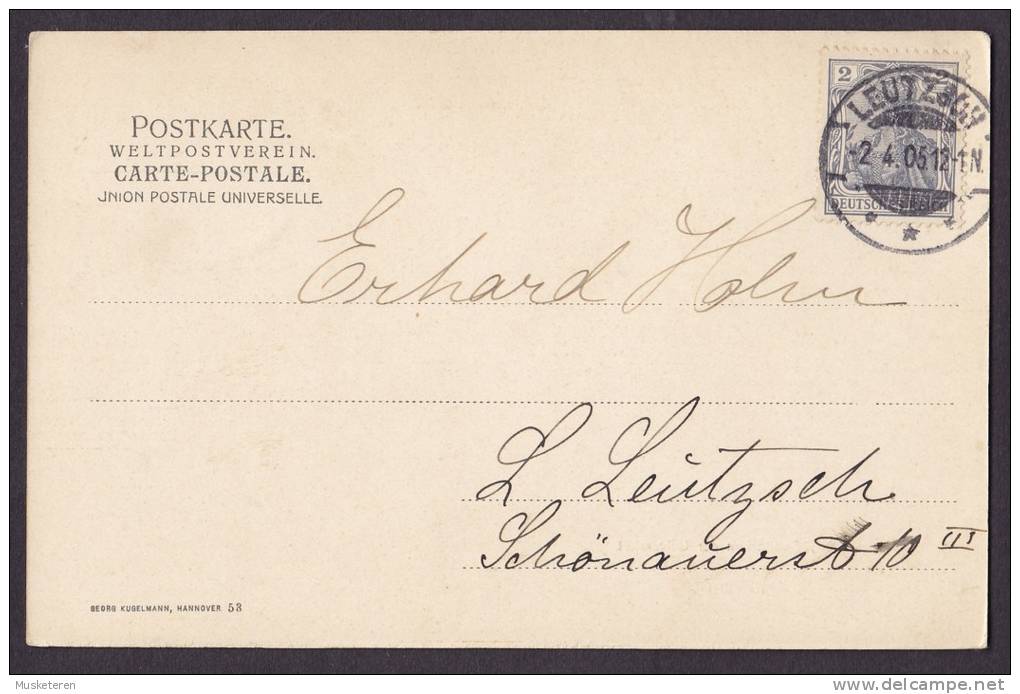 POSTKARTE.
WELTPOSTVEREIN.
CARTE-POSTALE.
UNION POSTALE UNIVERSELLE.
2
DEUTSCHES REICH
LEUTZSCH
-2.4.05 12-1N.
Erhard Holm
L Leutzsch
Schönauerst 10 III
GEORG KUGELMANN, HANNOVER 53
Musketeren
delcampe.net